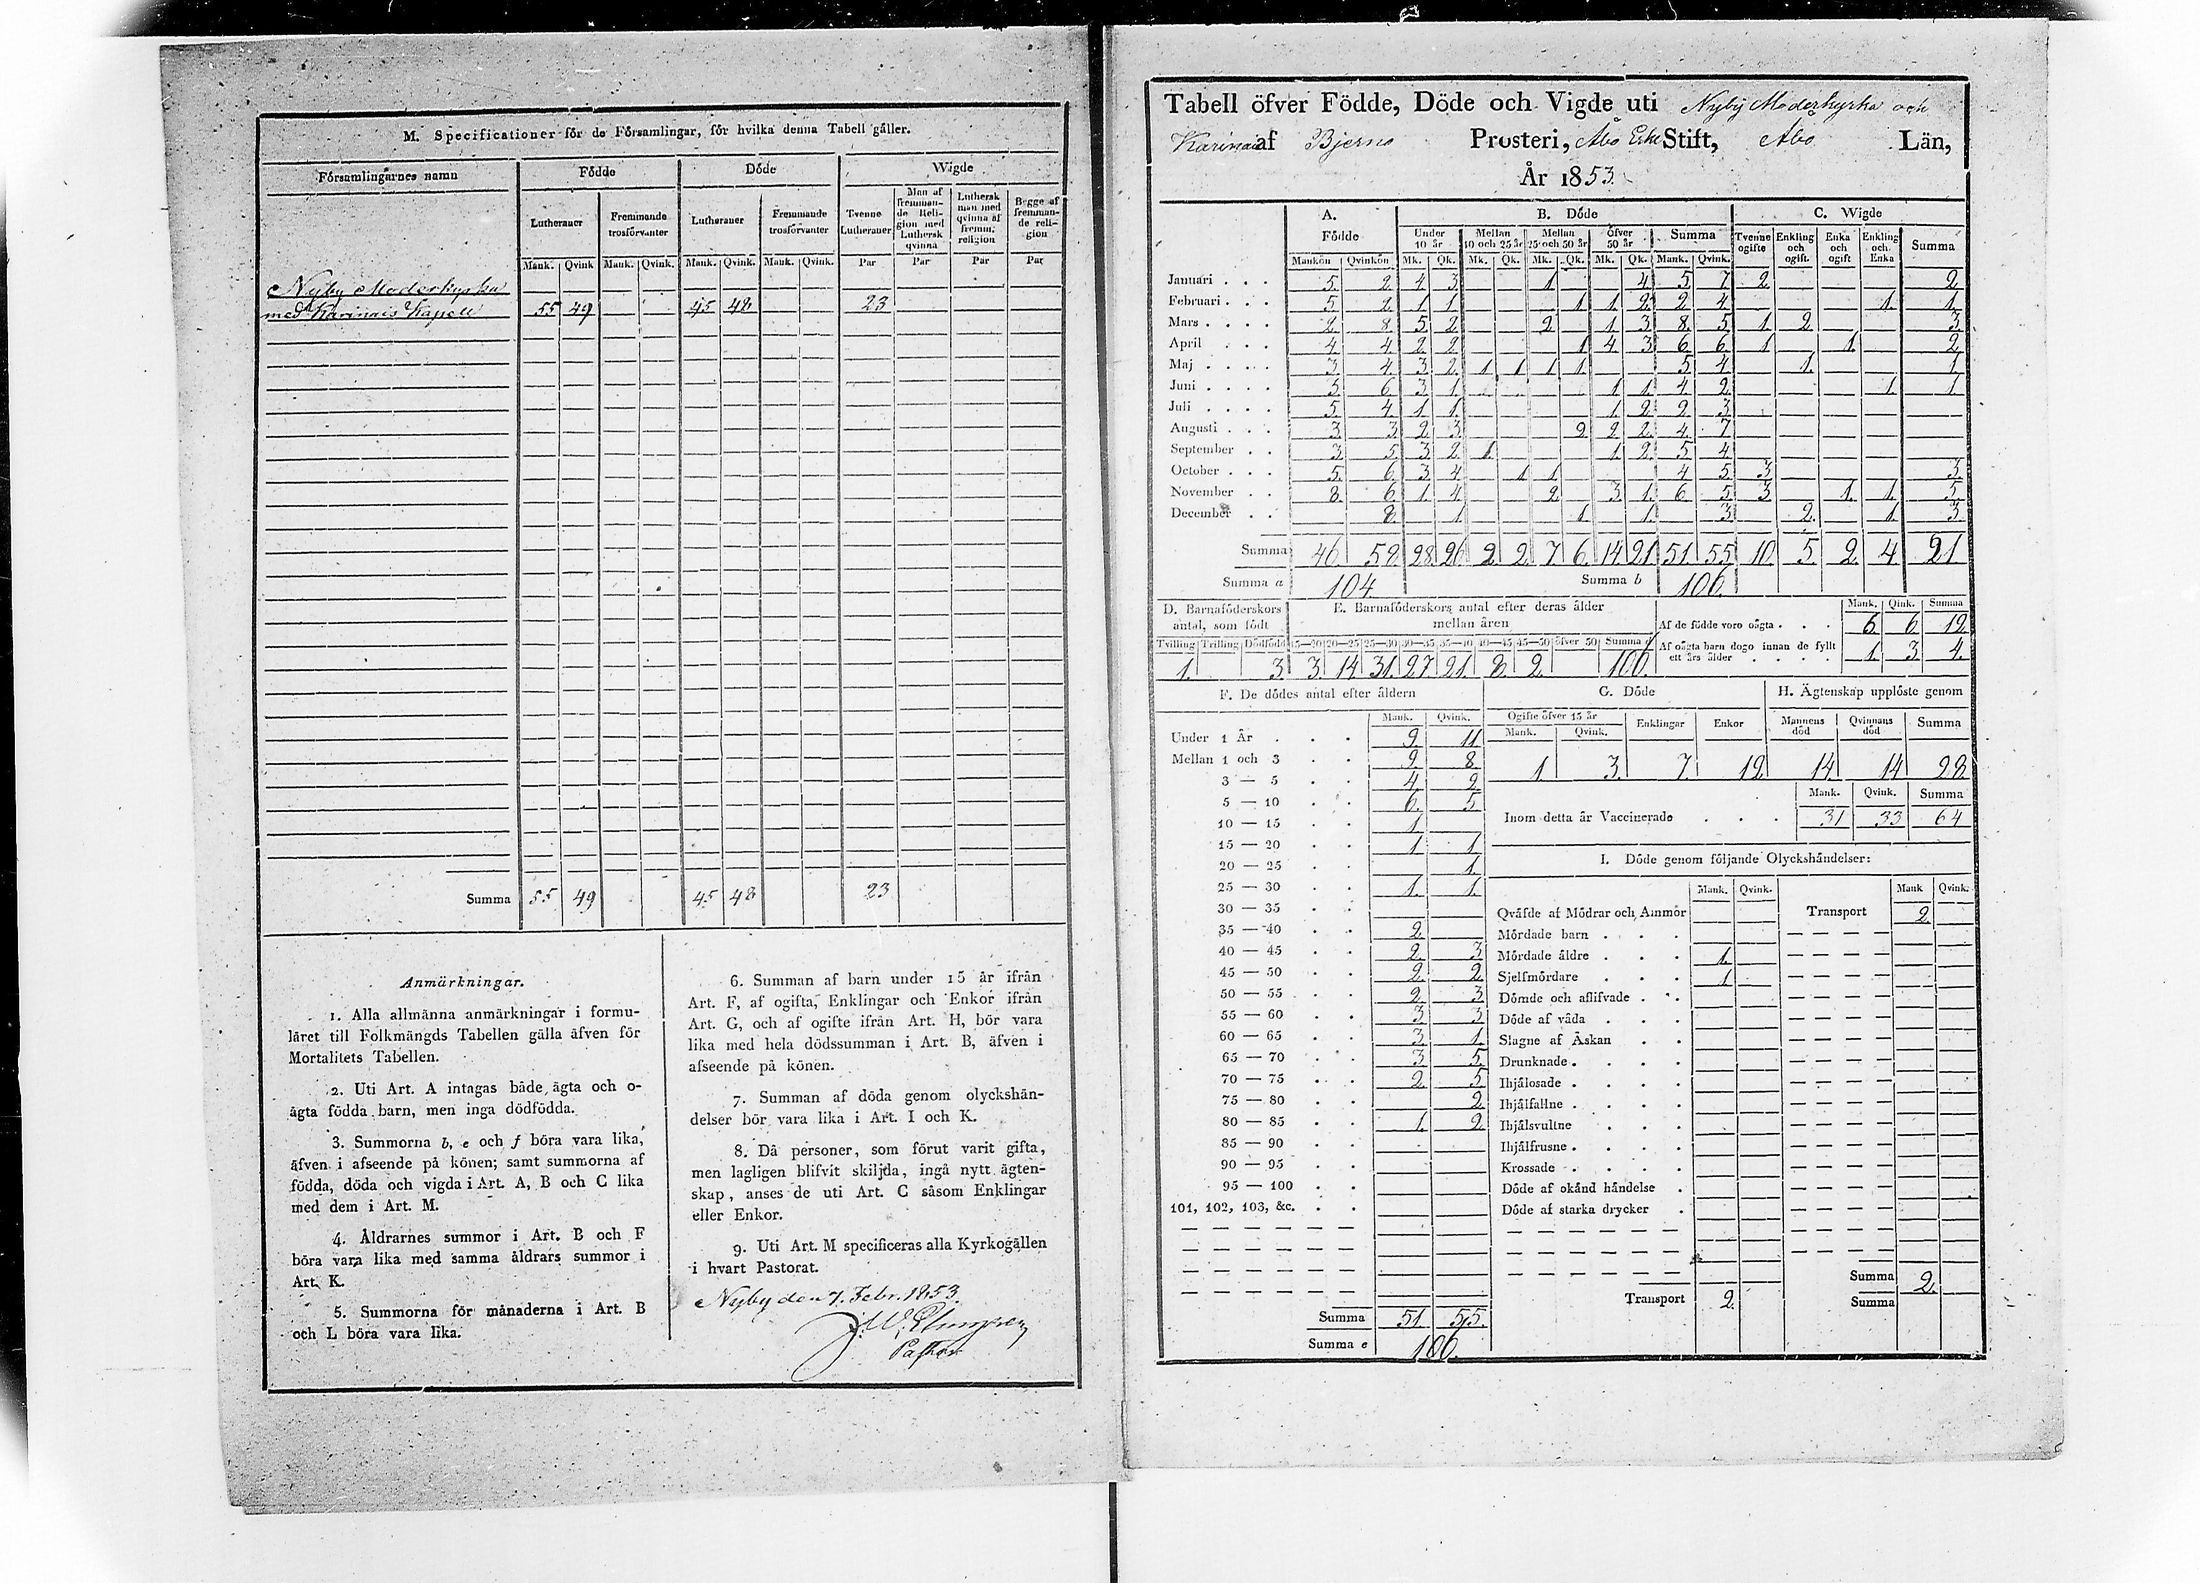 M. Specificationer för de Församlingar, för hvilka denna Tabell gäller.
Församlingarnes namn Födde Döde Wigde
Lutheraner Fremmande trosförvanter Lutheraner Fremmande trosförvanter Tvenne Lutheraner Man af fremmande Religion med Luthersk qvinna Luthersk man med qvinna af fremm: religion Begge af fremmande religion
Mank. Qvink Mank. Qvink. Mank. Qvink. Mank. Qvink. Par Par Par Par
Nyby Moderkyrka
med Karinais Kapell 55 49 45 48 23
Summa 55 49 45 48 23
Anmärkningar.
1. Alla allmänna anmärkningar i formu-
läret till Folkmängds Tabellen gälla äfven för
Mortalitets Tabellen.
2. Uti Art. A intagas både ägta och o-
ägta födda barn, men inga dödfödda.
3. Summorna b, e och f böra vara lika,
äfven i afseende på könen; samt summorna af
födda, döda och vigda i Art. A, B och C lika
med dem i Art. M.
4. Åldrarnes summor i Art. B och F
böra vara lika med samma åldrars summor i
Art. K.
5. Summorna för månaderna i Art. B
och L böra vara lika.
6. Summan af barn under 15 år ifrån
Art. F, af ogifta, Enklingar och Enkor ifrån
Art. G, och af ogifte ifrån Art. H, bör vara
lika med hela dödssumman i Art. B, äfven i
afseende på könen.
7. Summan af döda genom olyckshän-
delser bör vara lika i Art. I och K.
8. Då personer, som förut varit gifta,
men lagligen blifvit skiljda, ingå nytt ägten-
skap, anses de uti Art. C såsom Enklingar
eller Enkor.
9. Uti Art. M specificeras alla Kyrkogällen
i hvart Pastorat.
Nyby den 7. Febr. 1853.
Pastor
Tabell öfver Födde, Döde och Vigde uti Nyby Moderkyrka och
Karinais af Bjerno Prosteri, Åbo Erke Stift, Åbo Län,
År 1853.
A. Födde B. Döde C. Wigde
Under 10 år Mellan 10 och 25 år Mellan 25 och 50 år öfver 50 år Summa Tvenne ogifte Enkling och ogift. Enka och ogift Enkling och Enka Summa
Mankön Qvinkön Mk. Qk. Mk. Qk. Mk. Qk. Mk. Qk. Mank. Qvink.
Januari . . . 5 2 4 3 1 4 5 7 2 2
Februari . . . 5 2 1 1 1 1 2 2 4 1 1
Mars . . . . 2 8 5 2 2 1 3 8 5 1 2 3
April . . . 4 4 2 2 1 4 3 6 6 1 1 2
Maj . . . . 3 4 3 2 1 1 1 1 5 4 1 1
Juni . . . . 3 6 3 1 1 1 4 2 1 1
Juli . . . . 5 4 1 1 1 2 2 3
Augusti . . . 3 3 2 3 2 2 2 4 7
September . . 3 5 3 2 1 1 2 5 4
October . . . 5 6 3 4 1 1 4 5 3 3
November . . 8 6 1 4 2 3 1 6 5 3 1 1 5
December . . 8 1 1 1 3 2 1 3
Summa 46 58 28 26 2 2 7 6 14 21 51 55 10 5 2 4 21
Summa a 104 Summa b 106
D. Barnaföderskors antal, som födt
Tvilling Trilling Dödfödd
1 3
E. Barnaföderskors antal efter deras ålder mellan åren
15—20 20—25 25—30 30—35 35—40 40—45 45—50 öfver 50 Summa d
3 14 31 27 21 8 2 106
Mank. Qink. Summa
Af de födde voro oägta . . . 6 6 12
Af oägta barn dogo innan de fyllt ett års ålder . . . . 1 3 4
F. De dödes antal efter åldern
Mank. Qvink.
Under 1 År . . . 9 11
Mellan 1 och 3 . . 9 8
3 — 5 . . 4 2
5 — 10 . . 6 5
10 — 15 . . 1
15 — 20 . . 1 1
20 — 25 . . 1
25 — 30 . . 1 1
30 — 35 . .
35 — 40 . . 2
40 — 45 . . 2 3
45 — 50 . . 2 2
50 — 55 . . 2 3
55 — 60 . . 3 3
60 — 65 . . 3 1
65 — 70 . . 3 5
70 — 75 . . 2 5
75 — 80 . . 2
80 — 85 . . 1 2
85 — 90 . .
90 — 95 . .
95 — 100 . .
101, 102, 103, &c. . .
Summa 51 55
Summa e 106
G. Döde
Ogifte öfver 15 år Enklingar Enkor
Mank. Qvink.
1 3 7 12
H. Ägtenskap upplöste genom
Mannens död Qvinnans död Summa
14 14 28
Mank. Qvink. Summa
Inom detta år Vaccinerade . . . 31 33 64
I. Döde genom följande Olyckshändelser:
Mank. Qvink. Mank Qvink.
Qväfde af Mödrar och Ammor Transport 2
Mördade barn . . .
Mördade äldre . . . 1
Sjelfmördare . . 1
Dömde och aflifvade . .
Döde af våda . . .
Slagne af Åskan . .
Drunknade . . . .
Ihjälosade . . . .
Ihjälfallne . . . .
Ihjälsvultne . . .
Ihjälfrusne . . . .
Krossade . . . .
Döde af okänd händelse .
Döde af starka drycker .
Summa 2
Transport 2 Summa